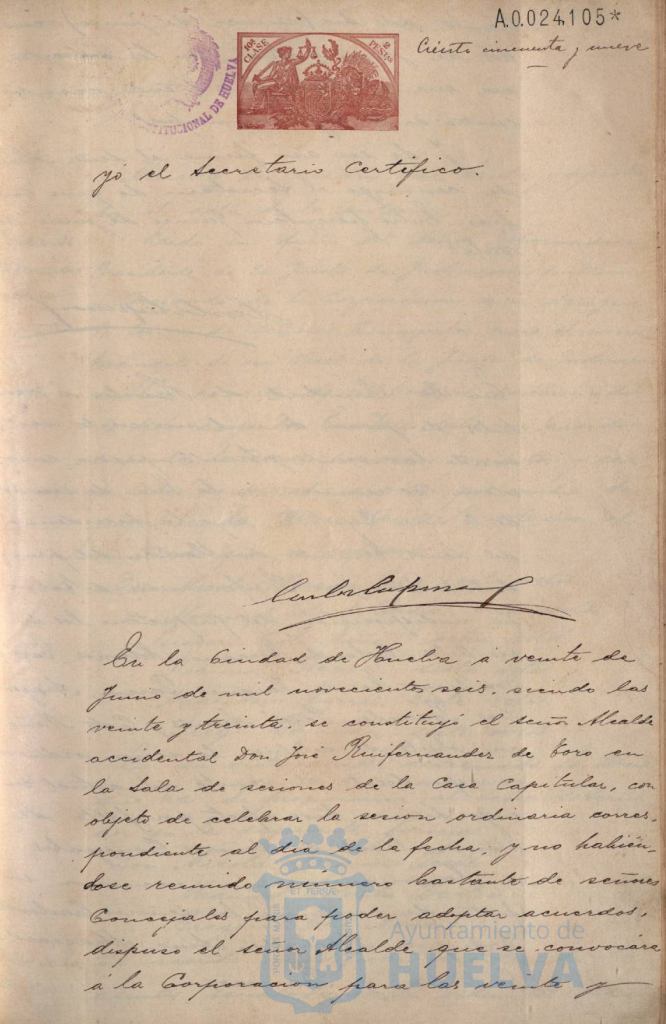 A.0.024,105*
Ciento cincuenta y nueve
10ª CLASE
2 PESTAS
CONSTITUCIONAL DE HUELVA
yó el Secretario Certifico.
En la Ciudad de Huelva á veinte de
Junio de mil novecientos seis, siendo las
veinte y treinta, se constituyó el señor Alcalde
accidental Don José Ruifernandez de Toro en
la Sala de sesiones de la Casa Capitular, con
objeto de celebrar la sesion ordinaria corres-
pondiente al dia de la fecha, y no habién-
dose reunido número bastante de señores
Concejales para poder adoptar acuerdos,
dispuso el señor Alcalde que se convocára
á la Corporacion para las veinte y
Ayuntamiento de
HUELVA